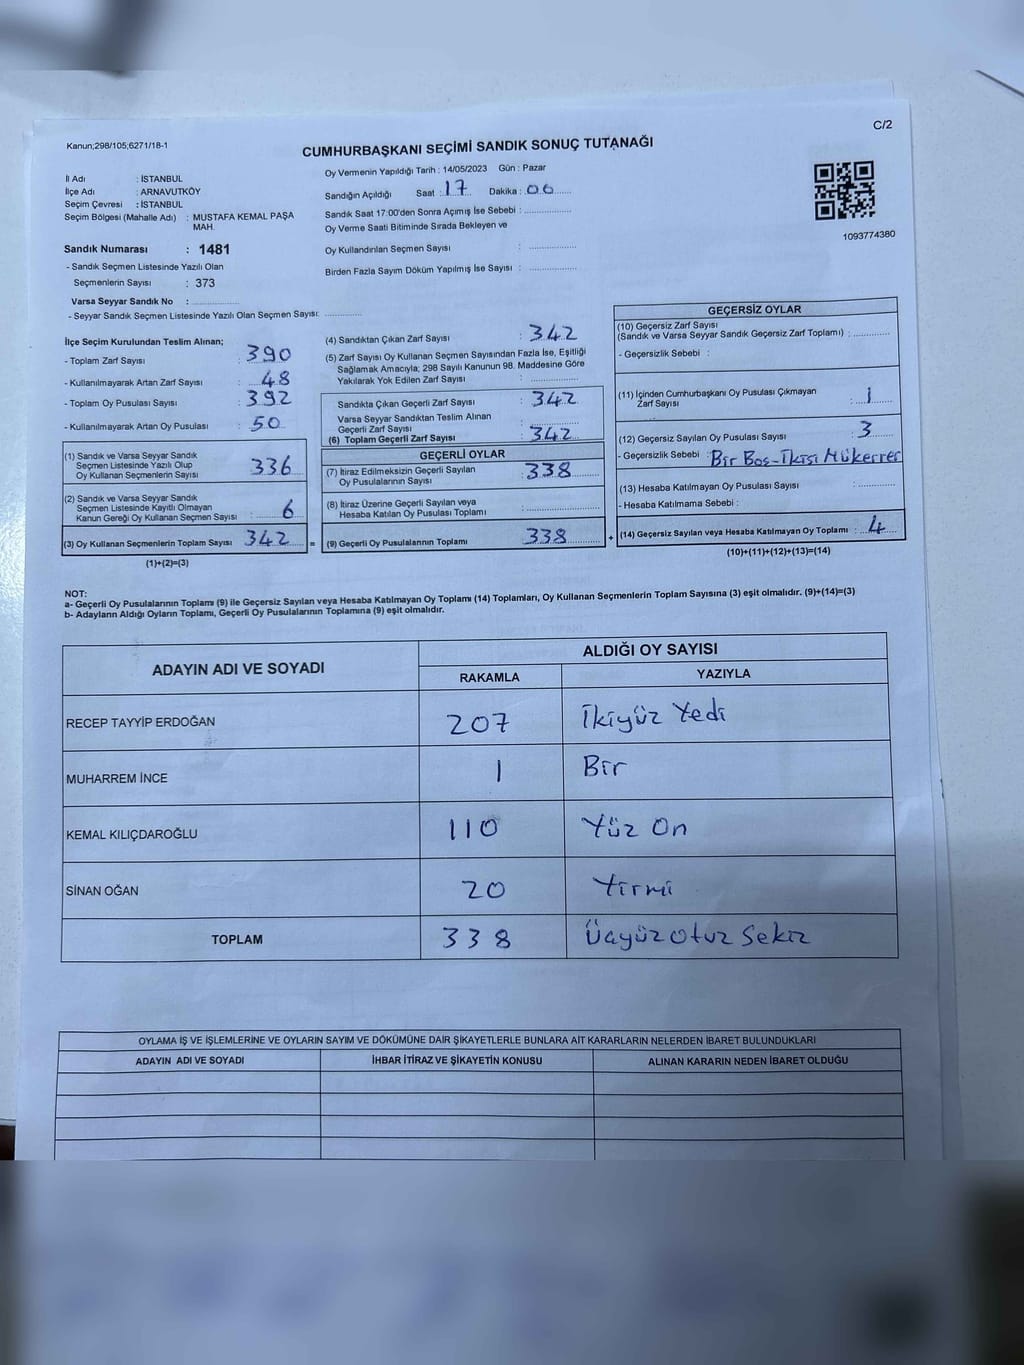 C/2
Kanun;298/105;6271/18-1
CUMHURBAŞKANI SEÇİMİ SANDIK SONUÇ TUTANAĞI
İl Adı : İSTANBUL
İlçe Adı : ARNAVUTKÖY
Seçim Çevresi : İSTANBUL
Seçim Bölgesi (Mahalle Adı) : MUSTAFA KEMAL PAŞA
MAH.
Sandık Numarası : 1481
- Sandık Seçmen Listesinde Yazılı Olan
Seçmenlerin Sayısı : 373
Varsa Seyyar Sandık No : ..................
- Seyyar Sandık Seçmen Listesinde Yazılı Olan Seçmen Sayısı: .............
Oy Vermenin Yapıldığı Tarih : 14/05/2023 Gün : Pazar
Sandığın Açıldığı Saat : 17 Dakika : 06
Sandık Saat 17:00'den Sonra Açımış İse Sebebi : ..................
Oy Verme Saati Bitiminde Sırada Bekleyen ve
Oy Kullandırılan Seçmen Sayısı : ..................
Birden Fazla Sayım Döküm Yapılmış İse Sayısı : ..................
1093774380
İlçe Seçim Kurulundan Teslim Alınan;
- Toplam Zarf Sayısı : 390
- Kullanılmayarak Artan Zarf Sayısı : 48
- Toplam Oy Pusulası Sayısı : 392
- Kullanılmayarak Artan Oy Pusulası : 50
(1) Sandık ve Varsa Seyyar Sandık
Seçmen Listesinde Yazılı Olup
Oy Kullanan Seçmenlerin Sayısı 336
(2) Sandık ve Varsa Seyyar Sandık
Seçmen Listesinde Kayıtlı Olmayan
Kanun Gereği Oy Kullanan Seçmen Sayısı : 6
(3) Oy Kullanan Seçmenlerin Toplam Sayısı 342 =
(1)+(2)=(3)
(4) Sandıktan Çıkan Zarf Sayısı : 342
(5) Zarf Sayısı Oy Kullanan Seçmen Sayısından Fazla İse, Eşitliği
Sağlamak Amacıyla; 298 Sayılı Kanunun 98. Maddesine Göre
Yakılarak Yok Edilen Zarf Sayısı : ..................
Sandıkta Çıkan Geçerli Zarf Sayısı : 342
Varsa Seyyar Sandıktan Teslim Alınan
Geçerli Zarf Sayısı :
(6) Toplam Geçerli Zarf Sayısı : 342
GEÇERLİ OYLAR
(7) İtiraz Edilmeksizin Geçerli Sayılan
Oy Pusulalarının Sayısı : 338
(8) İtiraz Üzerine Geçerli Sayılan veya
Hesaba Katılan Oy Pusulası Toplamı : ..................
(9) Geçerli Oy Pusulalarının Toplamı : 338 +
GEÇERSİZ OYLAR
(10) Geçersiz Zarf Sayısı
(Sandık ve Varsa Seyyar Sandık Geçersiz Zarf Toplamı) : .............
- Geçersizlik Sebebi :
(11) İçinden Cumhurbaşkanı Oy Pusulası Çıkmayan
Zarf Sayısı : 1
(12) Geçersiz Sayılan Oy Pusulası Sayısı : 3
- Geçersizlik Sebebi : Bir Boş-İkisi Mükerrer
(13) Hesaba Katılmayan Oy Pusulası Sayısı : .............
- Hesaba Katılmama Sebebi :
(14) Geçersiz Sayılan veya Hesaba Katılmayan Oy Toplamı : 4
(10)+(11)+(12)+(13)=(14)
NOT:
a- Geçerli Oy Pusulalarının Toplamı (9) ile Geçersiz Sayılan veya Hesaba Katılmayan Oy Toplamı (14) Toplamları, Oy Kullanan Seçmenlerin Toplam Sayısına (3) eşit olmalıdır. (9)+(14)=(3)
b- Adayların Aldığı Oyların Toplamı, Geçerli Oy Pusulalarının Toplamına (9) eşit olmalıdır.
ADAYIN ADI VE SOYADI ALDIĞI OY SAYISI
RAKAMLA YAZIYLA
RECEP TAYYİP ERDOĞAN 207 İkiyüz Yedi
MUHARREM İNCE 1 Bir
KEMAL KILIÇDAROĞLU 110 Yüz On
SİNAN OĞAN 20 Yirmi
TOPLAM 338 Üçyüz Otuz Sekiz
OYLAMA İŞ VE İŞLEMLERİNE VE OYLARIN SAYIM VE DÖKÜMÜNE DAİR ŞİKAYETLERLE BUNLARA AİT KARARLARIN NELERDEN İBARET BULUNDUKLARI
ADAYIN ADI VE SOYADI İHBAR İTİRAZ VE ŞİKAYETİN KONUSU ALINAN KARARIN NEDEN İBARET OLDUĞU